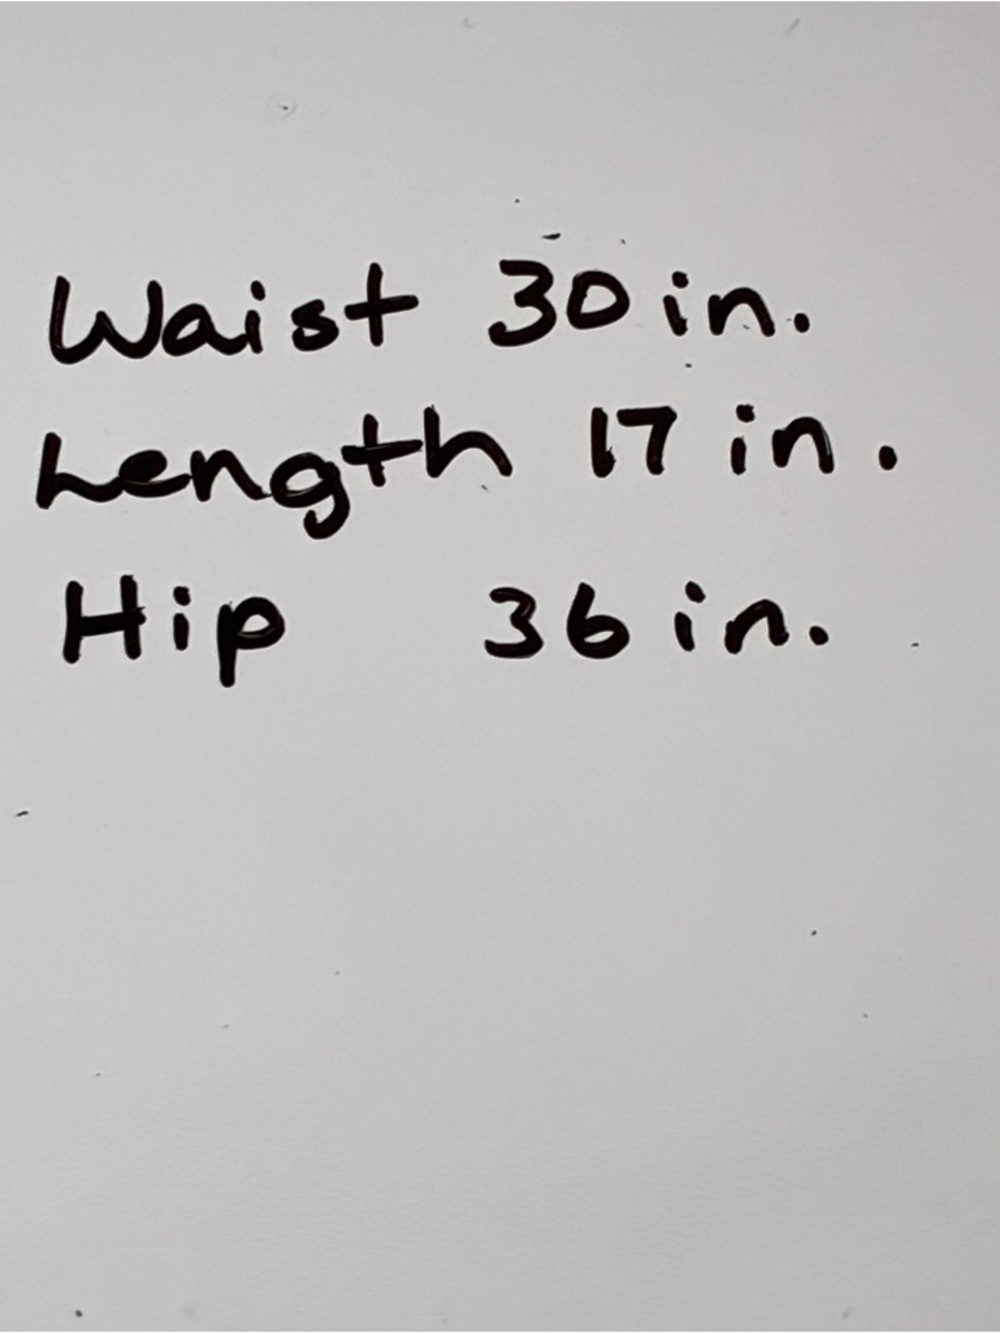 Waist 30 in.
Length 17 in.
Hip 36 in.